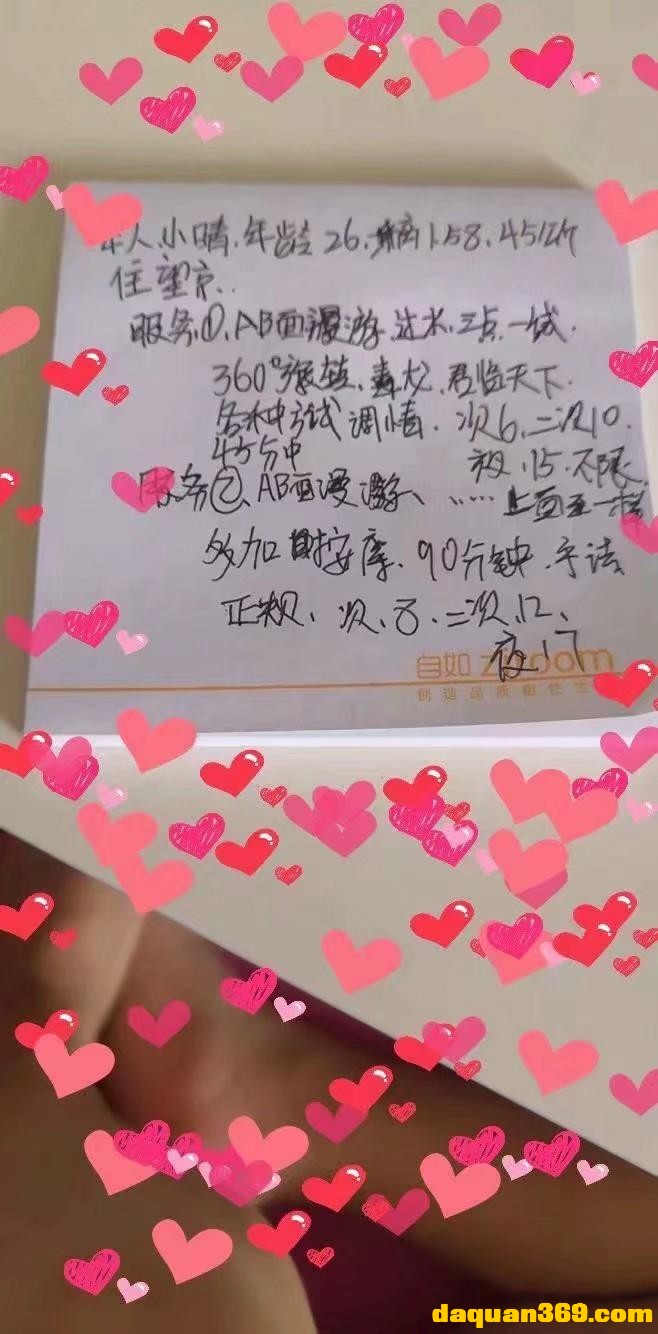 本人.小晴.年龄26.身高1.58.45公斤
住望京..
服务①.AB面漫游.过水.三点一线.
360°.毒龙.君临天下.
各种方式调情.一次6.二次10.
45分中
夜.15.不限
服务②、AB面漫游、……上面一样
多加按摩、90分钟.手法
正规、一次、8、二次、12、
夜、17
自如 ziroom
创造品质租住生
daquan369.com